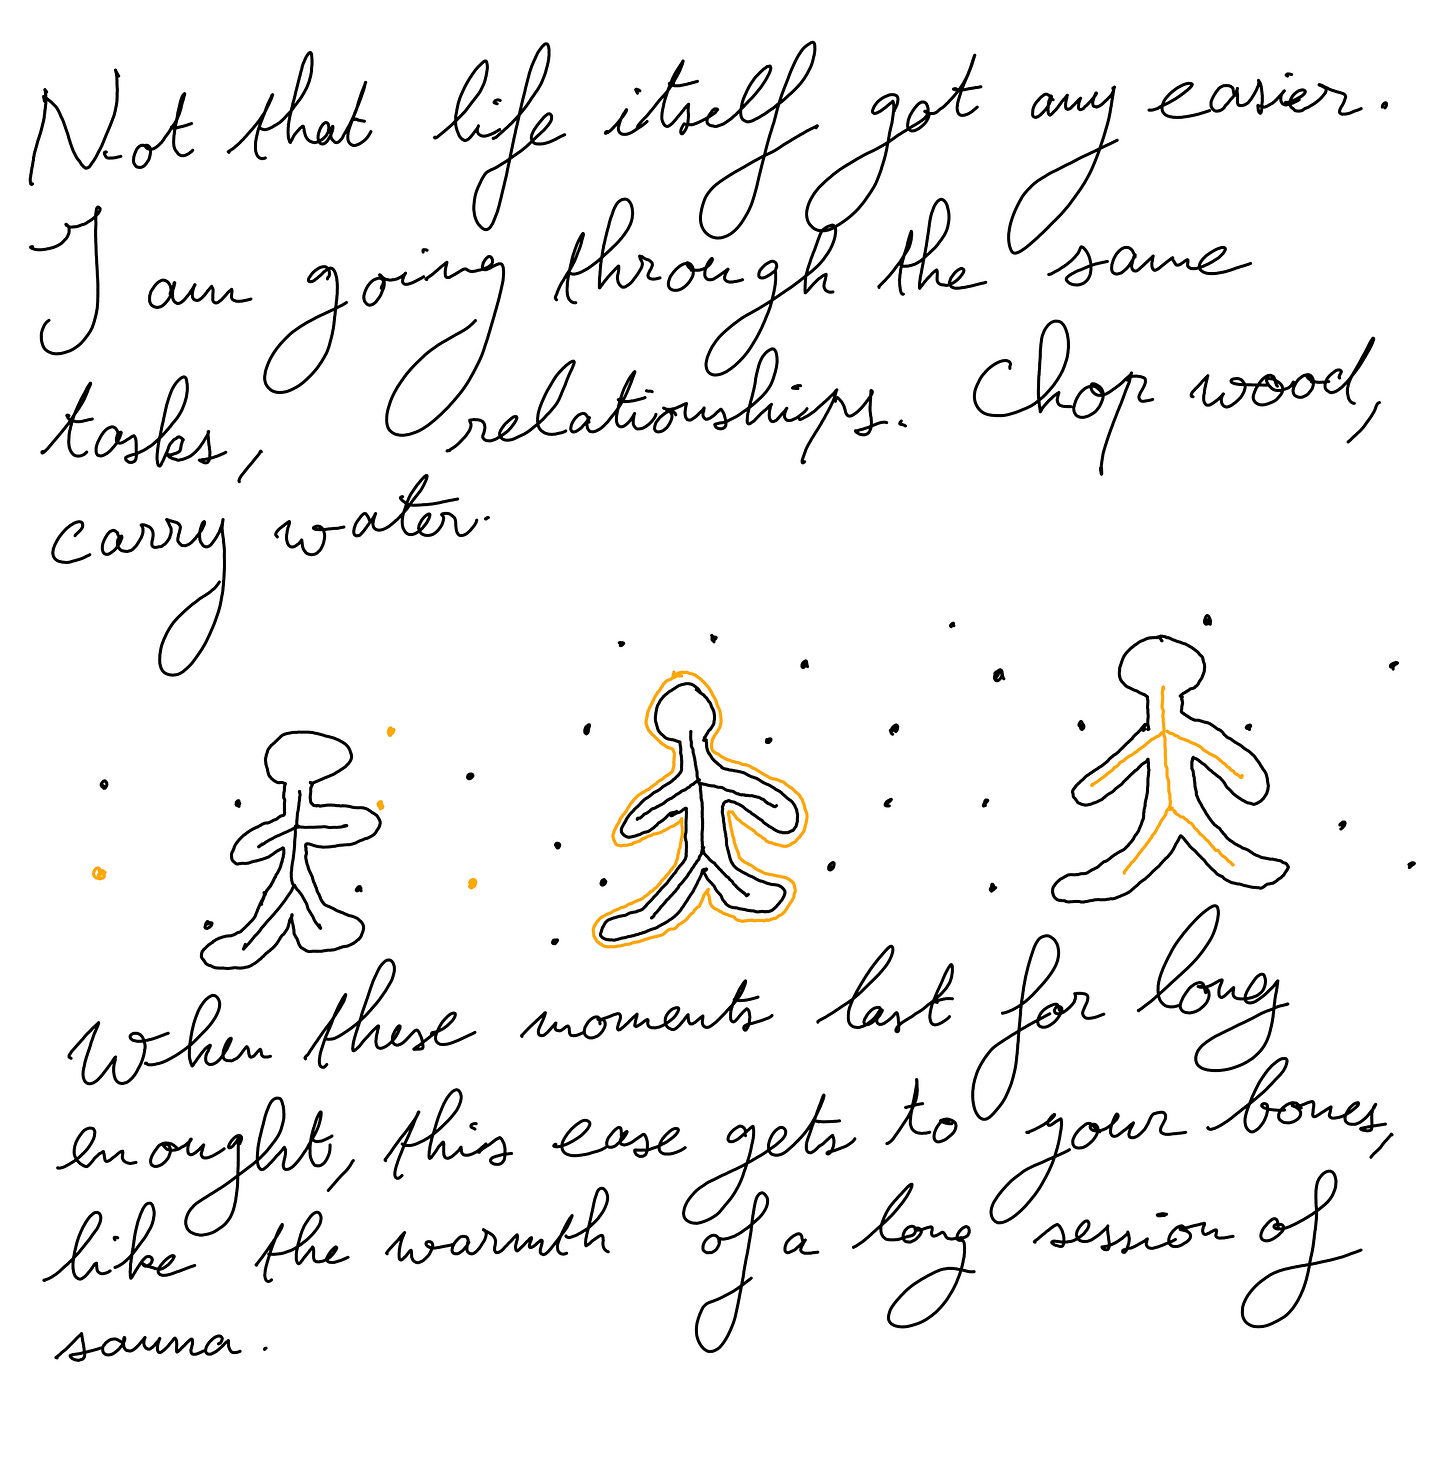 Not that life itself got any easier.
I am going through the same
tasks, relationships. Chop wood,
carry water.
When these moments last for long
enought, this ease gets to your bones,
like the warmth of a long session of
sauna.